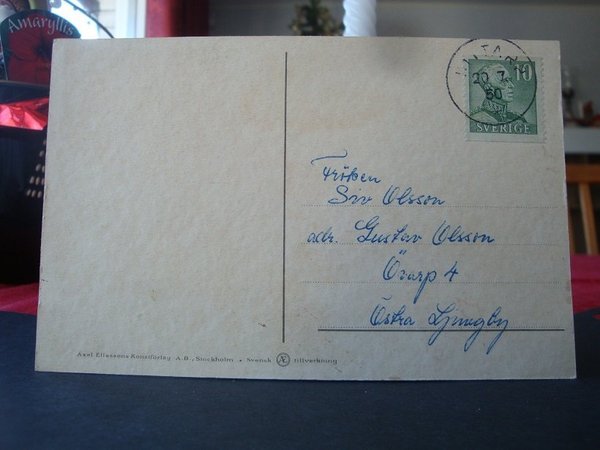 Amaryllis
10
20 7
50
SVERIGE
Fröken
Siv Olsson
adr. Gustav Olsson
Örarp 4
Östra Ljungby
Axel Eliassons Konstförlag A.B., Stockholm • Svensk Æ tillverkning